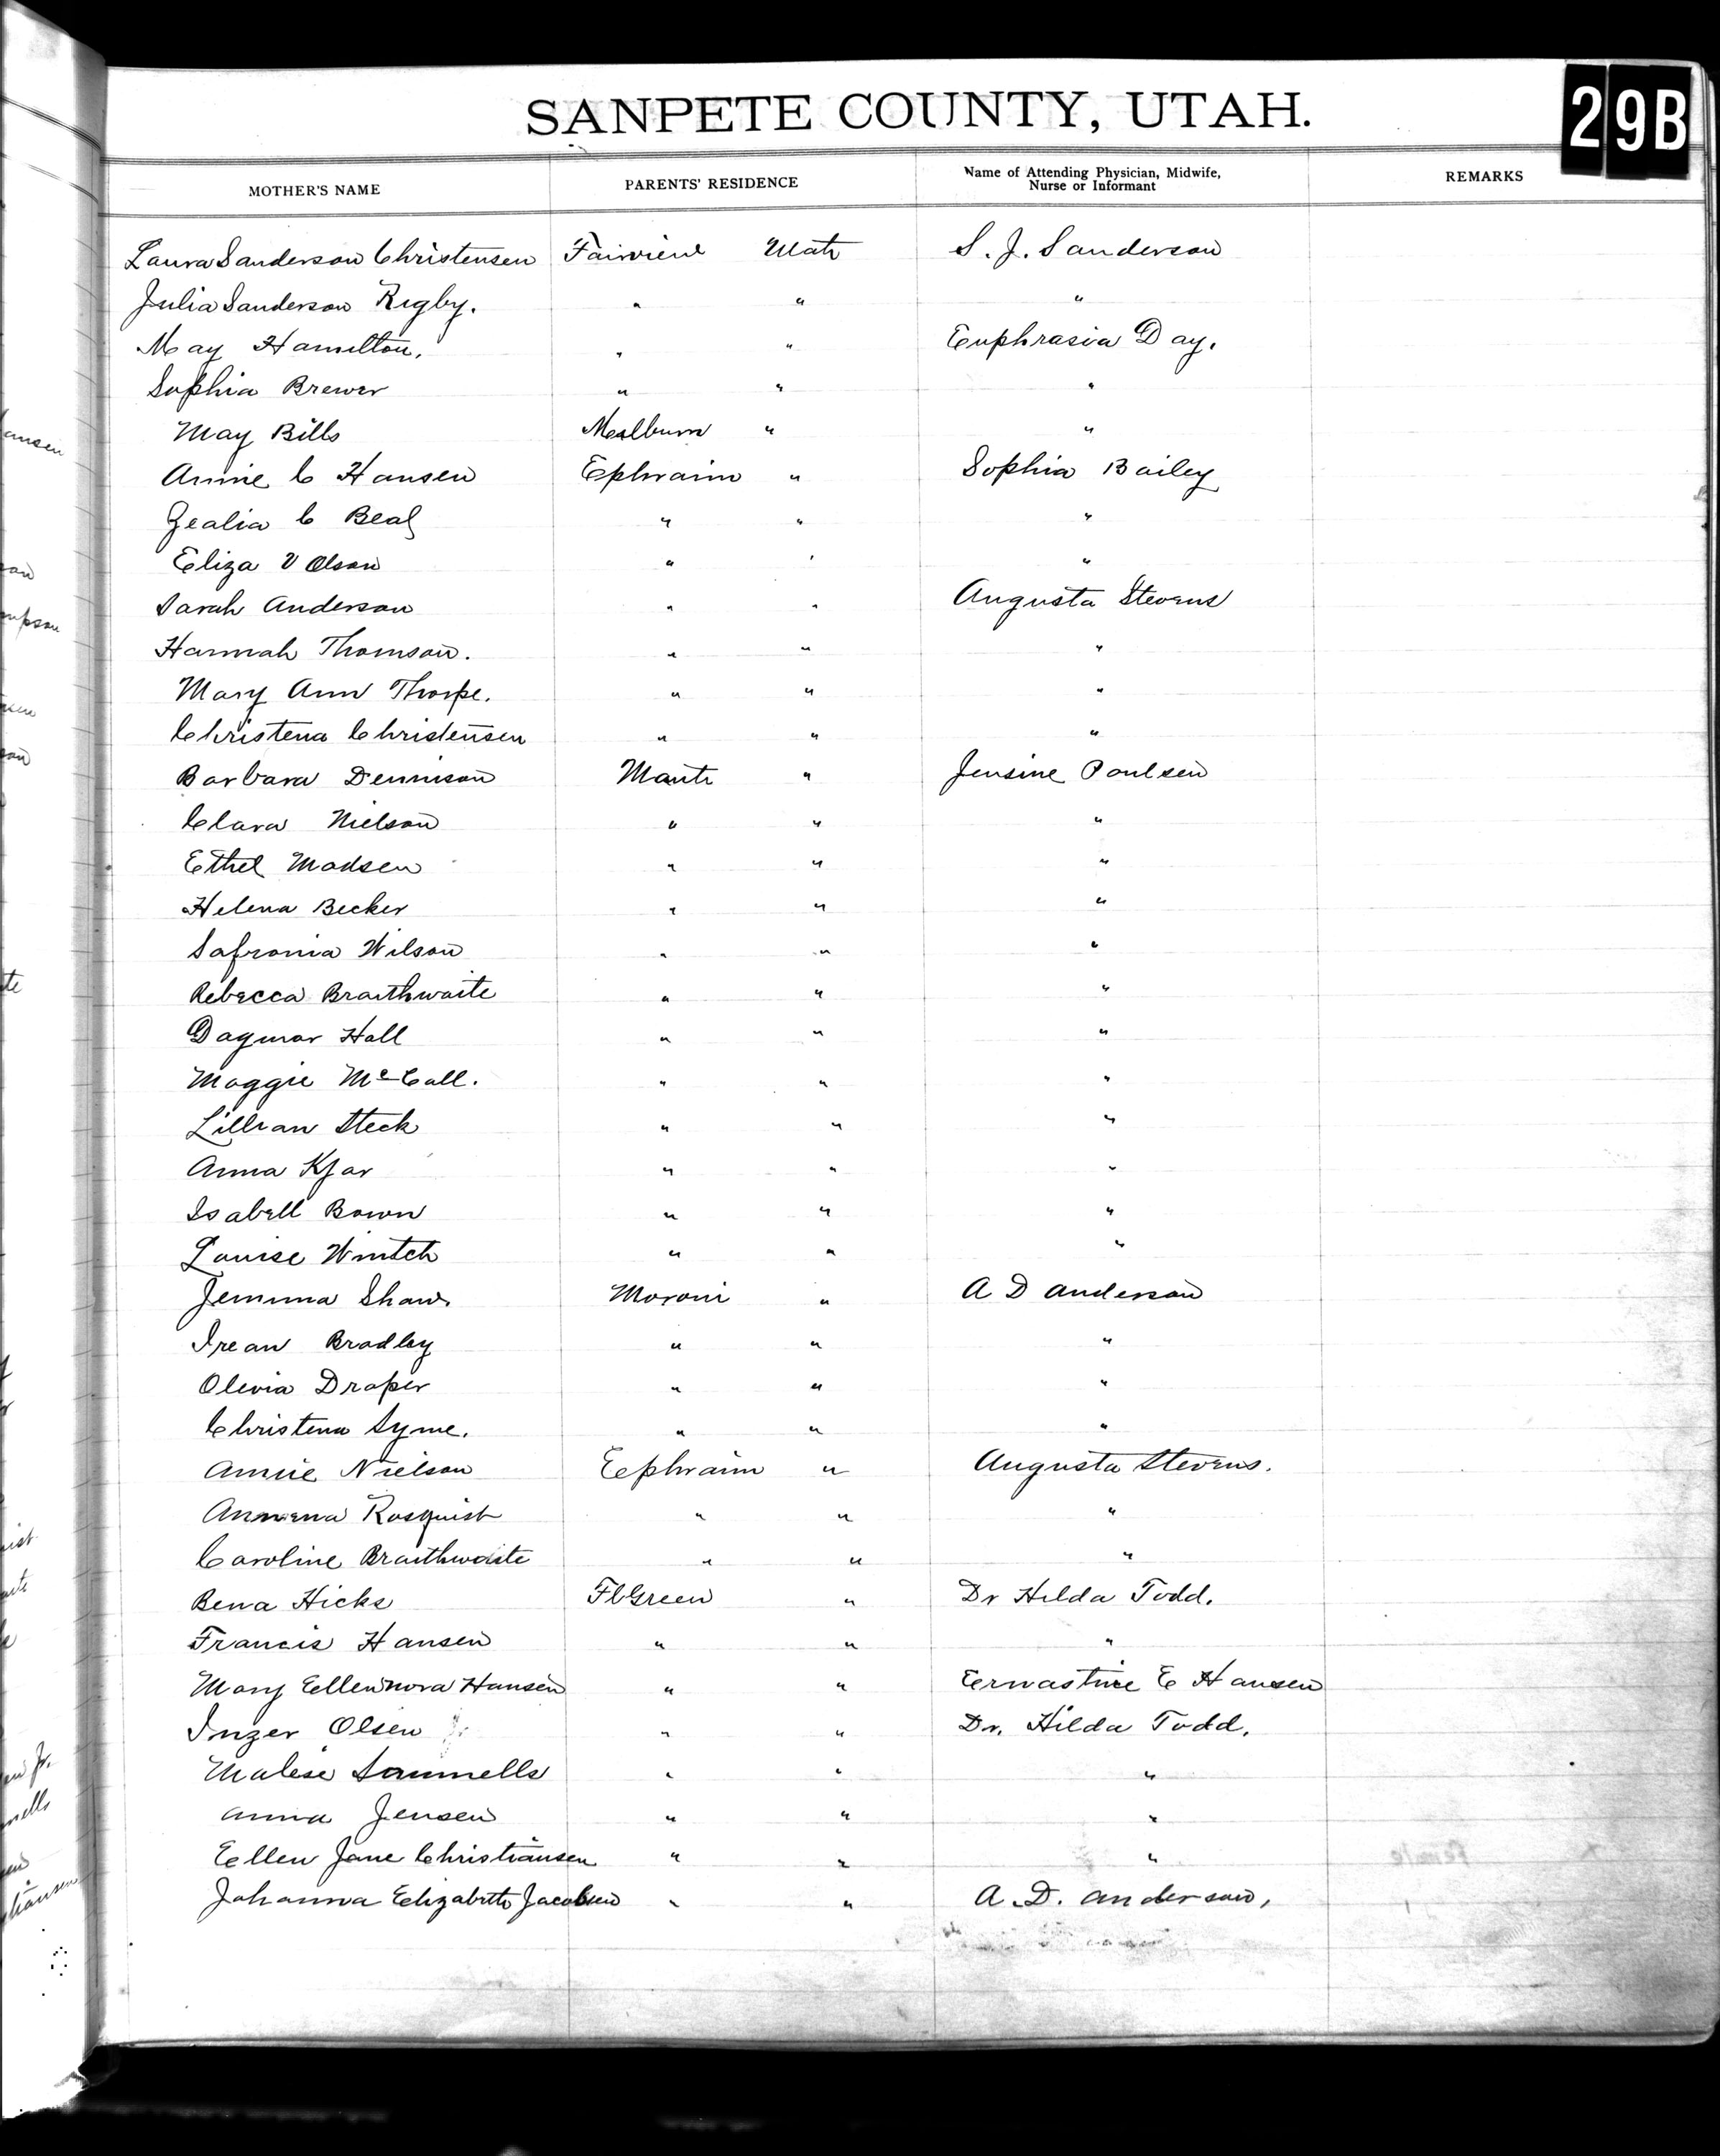 SANPETE COUNTY, UTAH.
29B
MOTHER'S NAME PARENTS' RESIDENCE Name of Attending Physician, Midwife, Nurse or Informant REMARKS
Laura Sanderson Christensen Fairview Utah S. J. Sanderson
Julia Sanderson Rigby. " " "
May Hamilton. " " Euphrasia Day.
Sophia Brewer " " "
May Bills Mealburn " "
Annie C Hansen Ephraim " Sophia Bailey
Zealia C Beal " " "
Eliza V Olson " " "
Sarah Anderson " " Augusta Stevens
Hannah Thomson. " " "
Mary Ann Thorpe. " " "
Christena Christensen " " "
Barbara Dennison Manti " Jensine Poulsen
Clara Nielson " " "
Ethel Madsen " " "
Helena Becker " " "
Safronia Wilson " " "
Rebecca Braithwaite " " "
Dagmar Hall " " "
Maggie McCall. " " "
Lillian Steck " " "
Anna Kjar " " "
Isabell Bown " " "
Louise Wintch " " "
Jemima Shaw. Moroni " A D Anderson
Irean Bradley " " "
Olevia Draper " " "
Christena Syme. " " "
Annie Nielson Eephraim " Augusta Stevens.
Annena Rosquist " " "
Caroline Braithwaite " " "
Bena Hicks Ft Green " Dr Hilda Todd.
Francis Hansen " " "
Mary Ellennora Hansen " " Ernastine E Hansen
Inzer Olsen " " Dr. Hilda Todd.
Malese Sammells " " "
Anna Jensen " " "
Eellen Jane Christiansen " " "
Johanna Elizabeth Jacobsen " " A. D. Anderson,